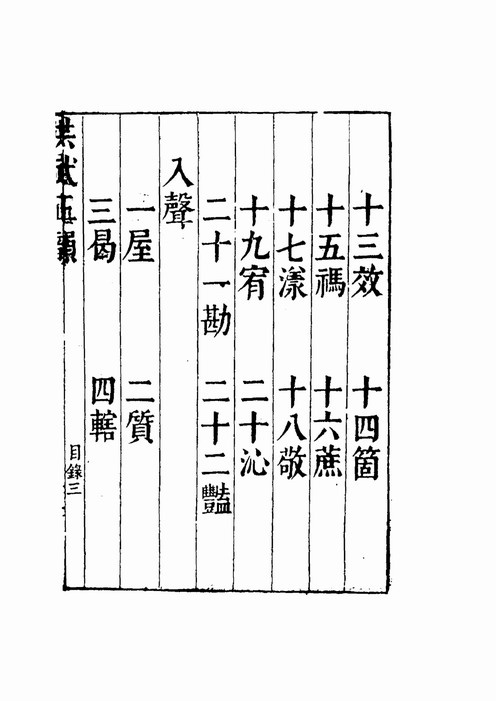 十三效 十四箇
十五禡 十六蔗
十七漾 十八敬
十九宥 二十沁
二十一勘 二十二豔
入聲
一屋 二質
三曷 四轄
洪武正韻
目錄三